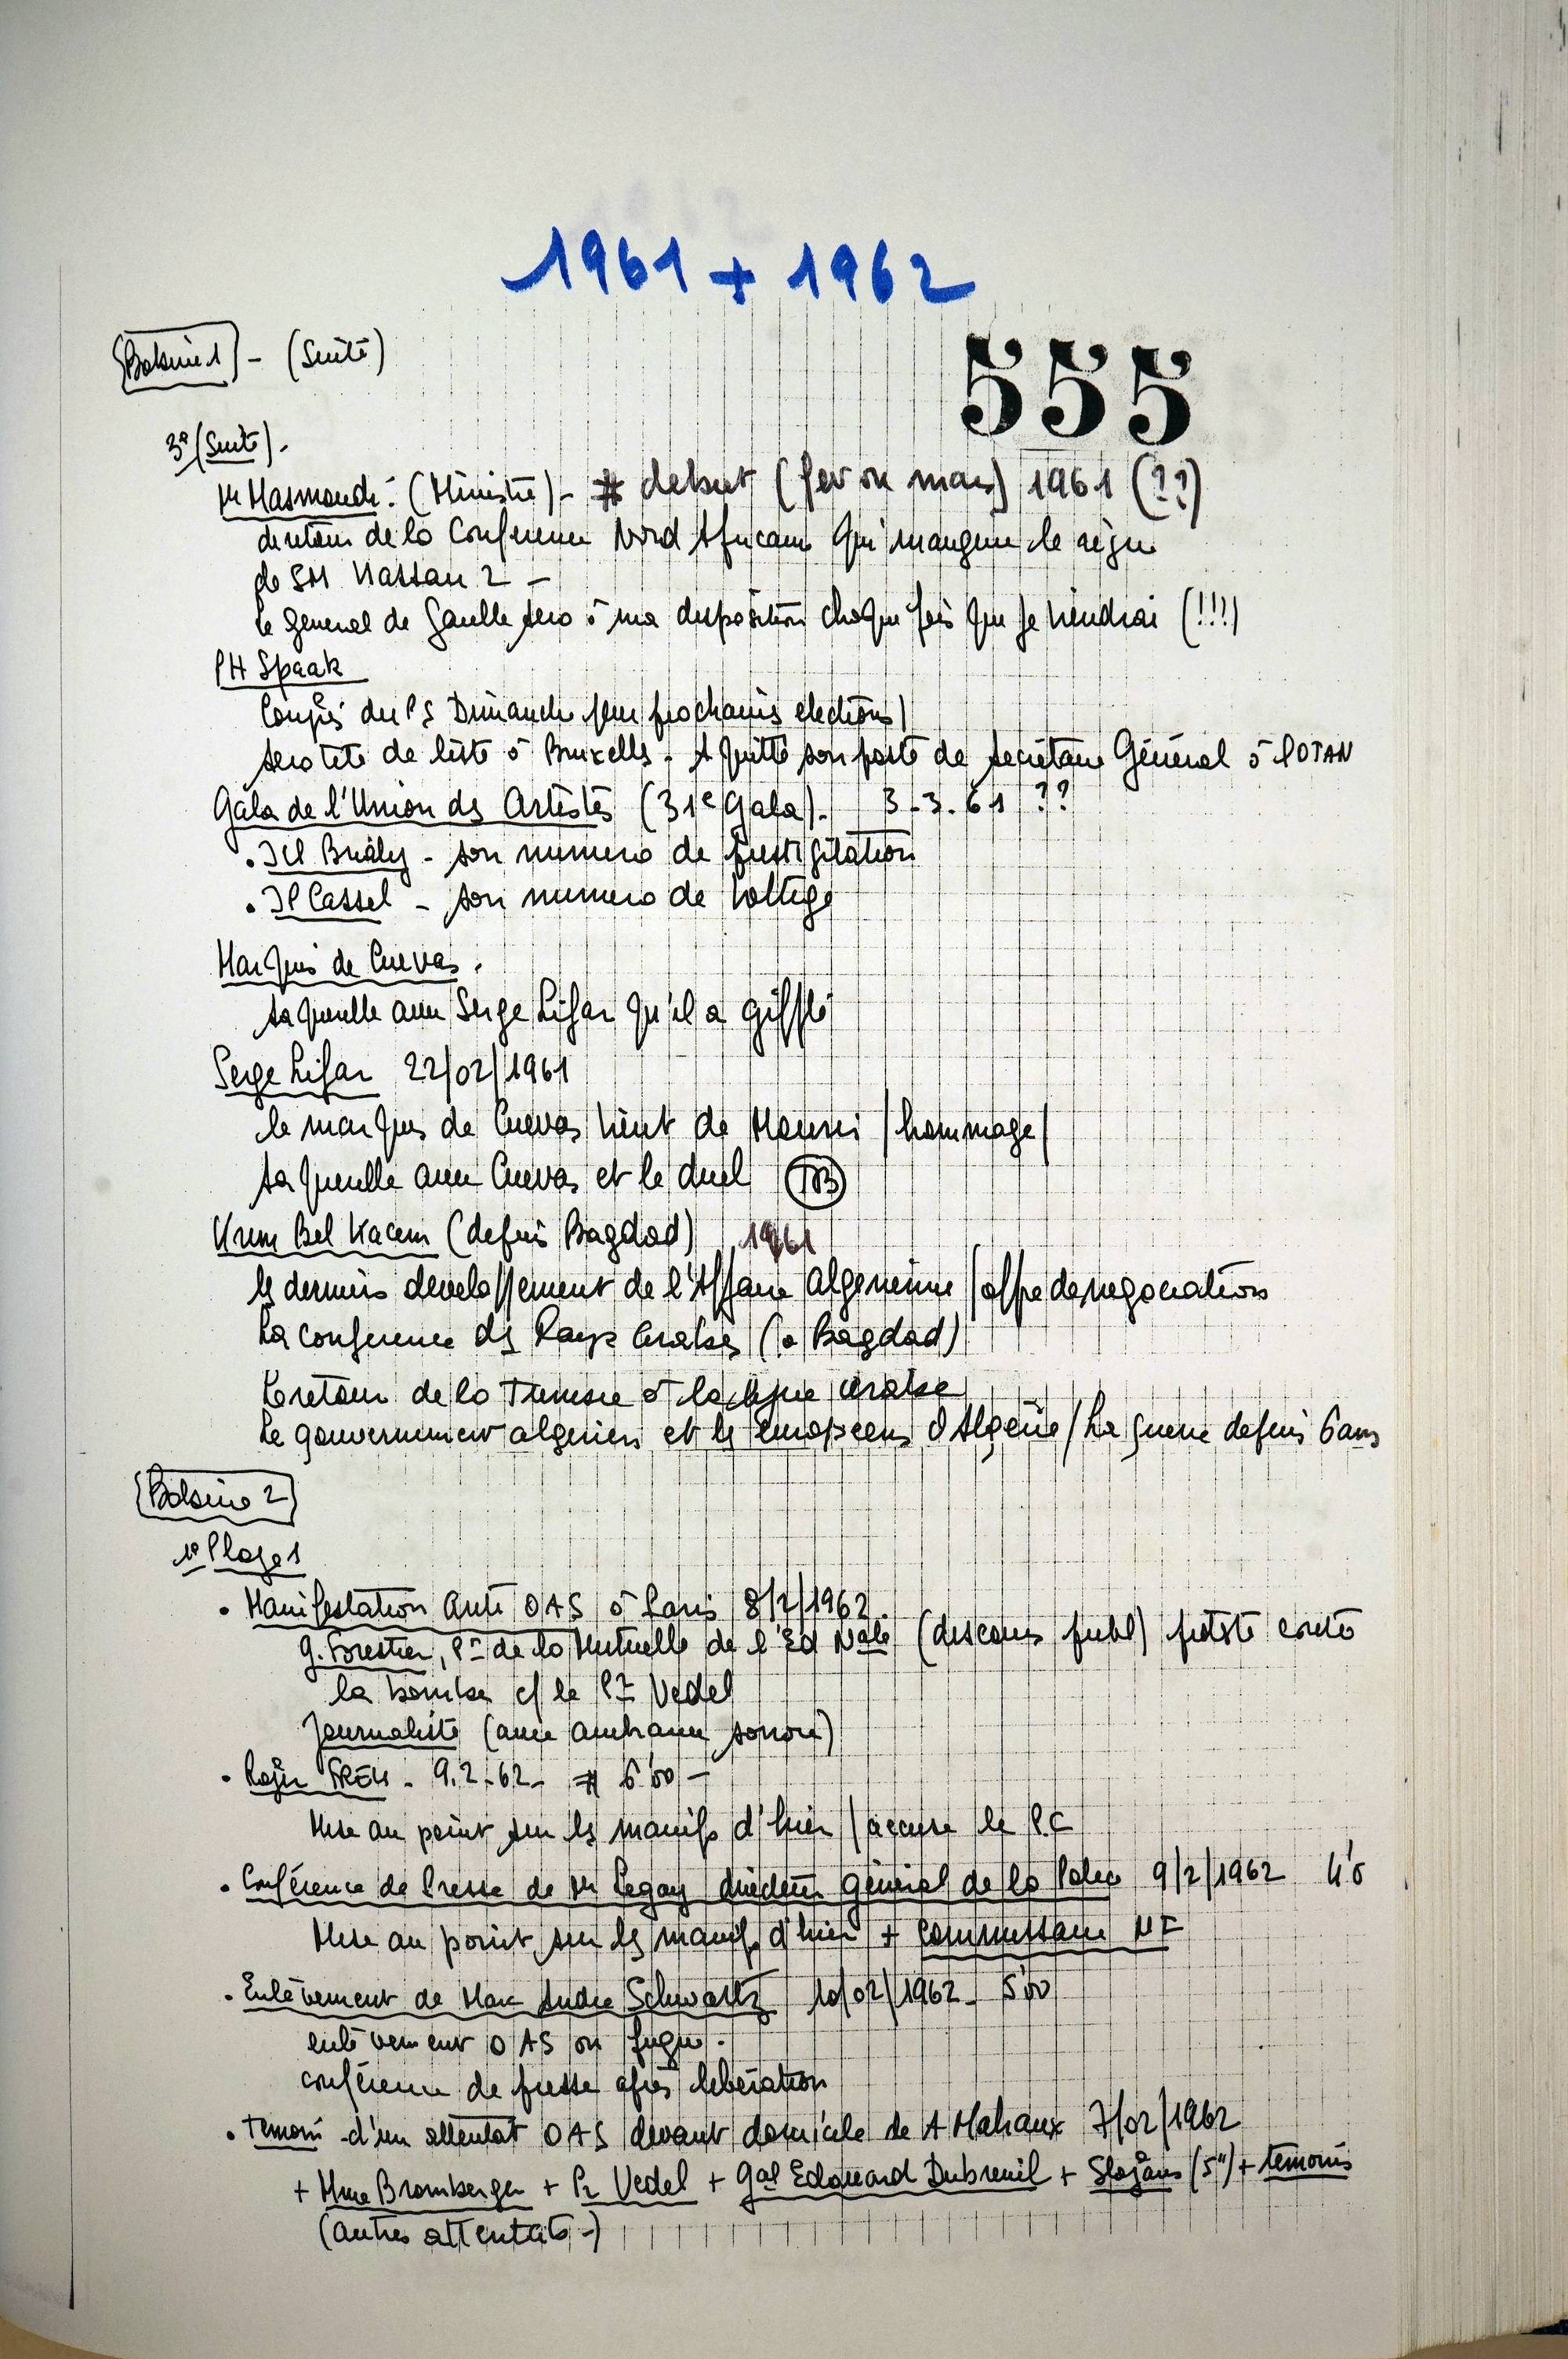 1961 + 1962
Bobine 1 - (Suite)
555
3° (Suite).
Mr Masmoudi : (Ministre) - # debut (fev ou mars) 1961 (??)
de retour de la Conference Nord Africaine qui inaugure le règne
de SM Hassan 2 -
Le general de Gaulle sera à ma disposition chaque fois que je viendrai (!!!)
PH Spaak
Congrès du PS Dimanche pour prochaines elections/
sera tete de liste à Bruxelles - A quitté son poste de secretaire Général à l'OTAN
Gala de l'Union des Artistes (31e Gala). 3-3.61 ??
. JCl Brialy - son numero de prestigitation
. JP Cassel - son numero de voltige
Marquis de Cuevas.
sa querelle avec Serge Lifar qu'il a gifflé
Serge Lifar 22/02/1961
le marquis de Cuevas vient de Mourir /hommage/
sa querelle avec Cuevas et le duel TB
Krim Bel Kacem (depuis Bagdad) 1961
les derniers developpement de l'Affaire algerienne /offre de negociations
La conference des Pays Arabes (à Bagdad)
Le retour de la Tunisie à la ligue arabe
Le gouvernement algerien et les europeens d'Algérie / La guerre depuis 6 ans
Bobine 2
1° Plage 1
• Manifestation anti OAS à Paris 8/2/1962.
G. Forestier, Pt de la Mutuelle de l'Ed Nale (discours publ) proteste contre
la bombe c/ le Pr Vedel
Journaliste (avec ambiance sonore)
• Roger FREY - 9.2.62 - # 6'00 -
Mise au point sur les manifs d'hier / accuse le P.C
• Conférence de Presse de Mr Legay directeur général de la Police 9/2/1962 4'0
Mise au point sur les manifs d'hier + Commissaire
• Enlèvement de Marc Andre Schwartz 10/02/1962 - 5'00
enlèvement OAS ou fugue.
conférence de presse après liberation
• Temoin d'un attentat OAS devant domicile de A Mahaux 7/02/1962
+ Mme Bromberger + Pr Vedel + Gal Edouard Dubreuil + Slogans (5") + temoins
(autres attentats -)